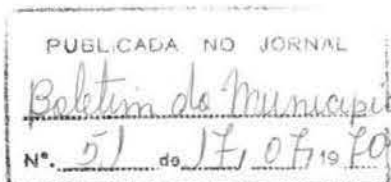 PUBLICADA NO JORNAL
Boletim do Municípi
Nº. 51 de 17, 07, 19 70